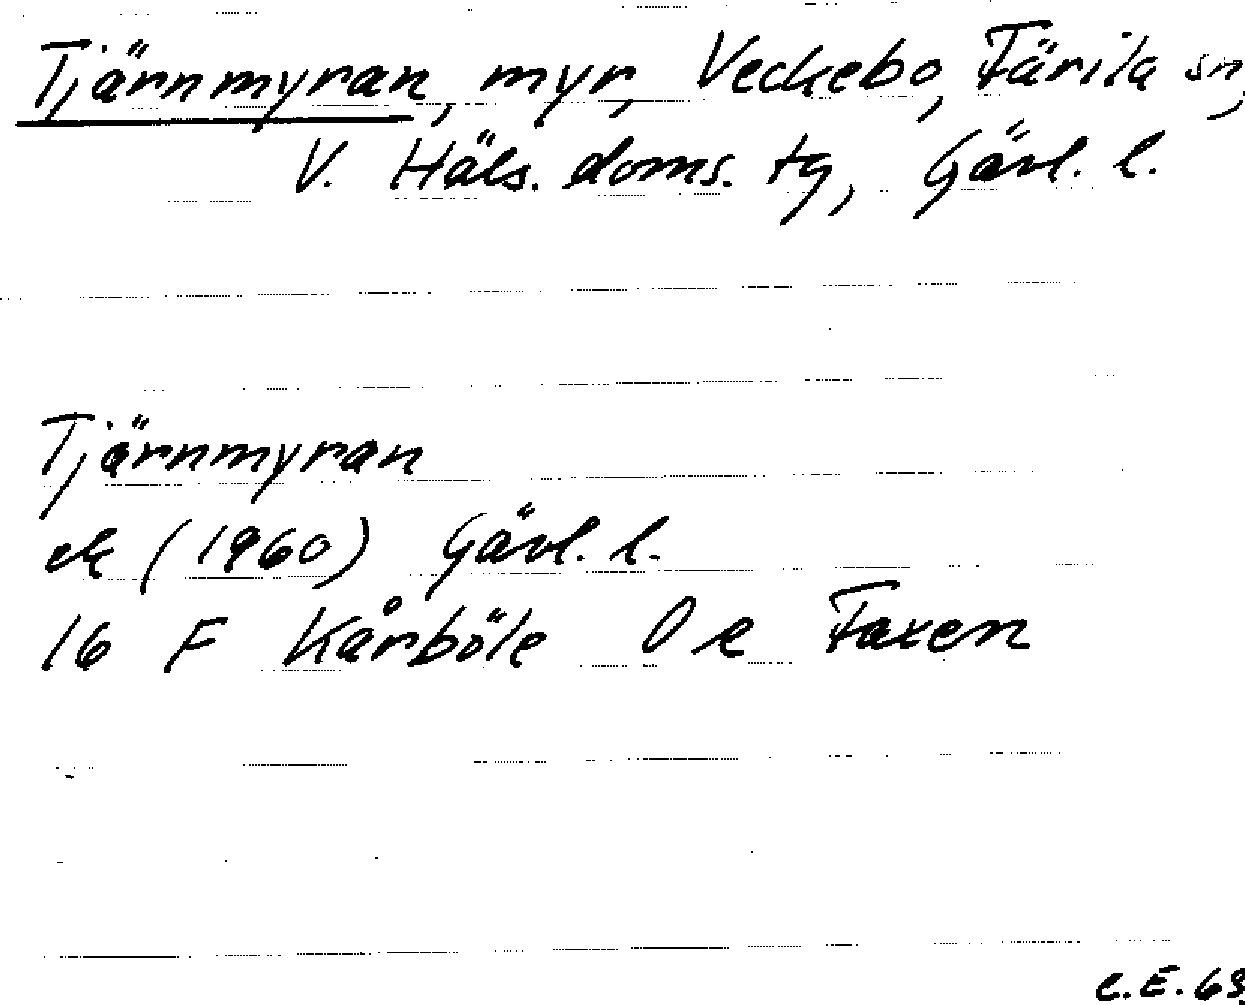 Tjärnmyran, myr, Veckebo, Färila sn,
V. Häls. doms. tg, Gävl. l.
Tjärnmyran
ek (1960) Gävl. l.
16 F Kårböle O e Faxen
C.E. 63